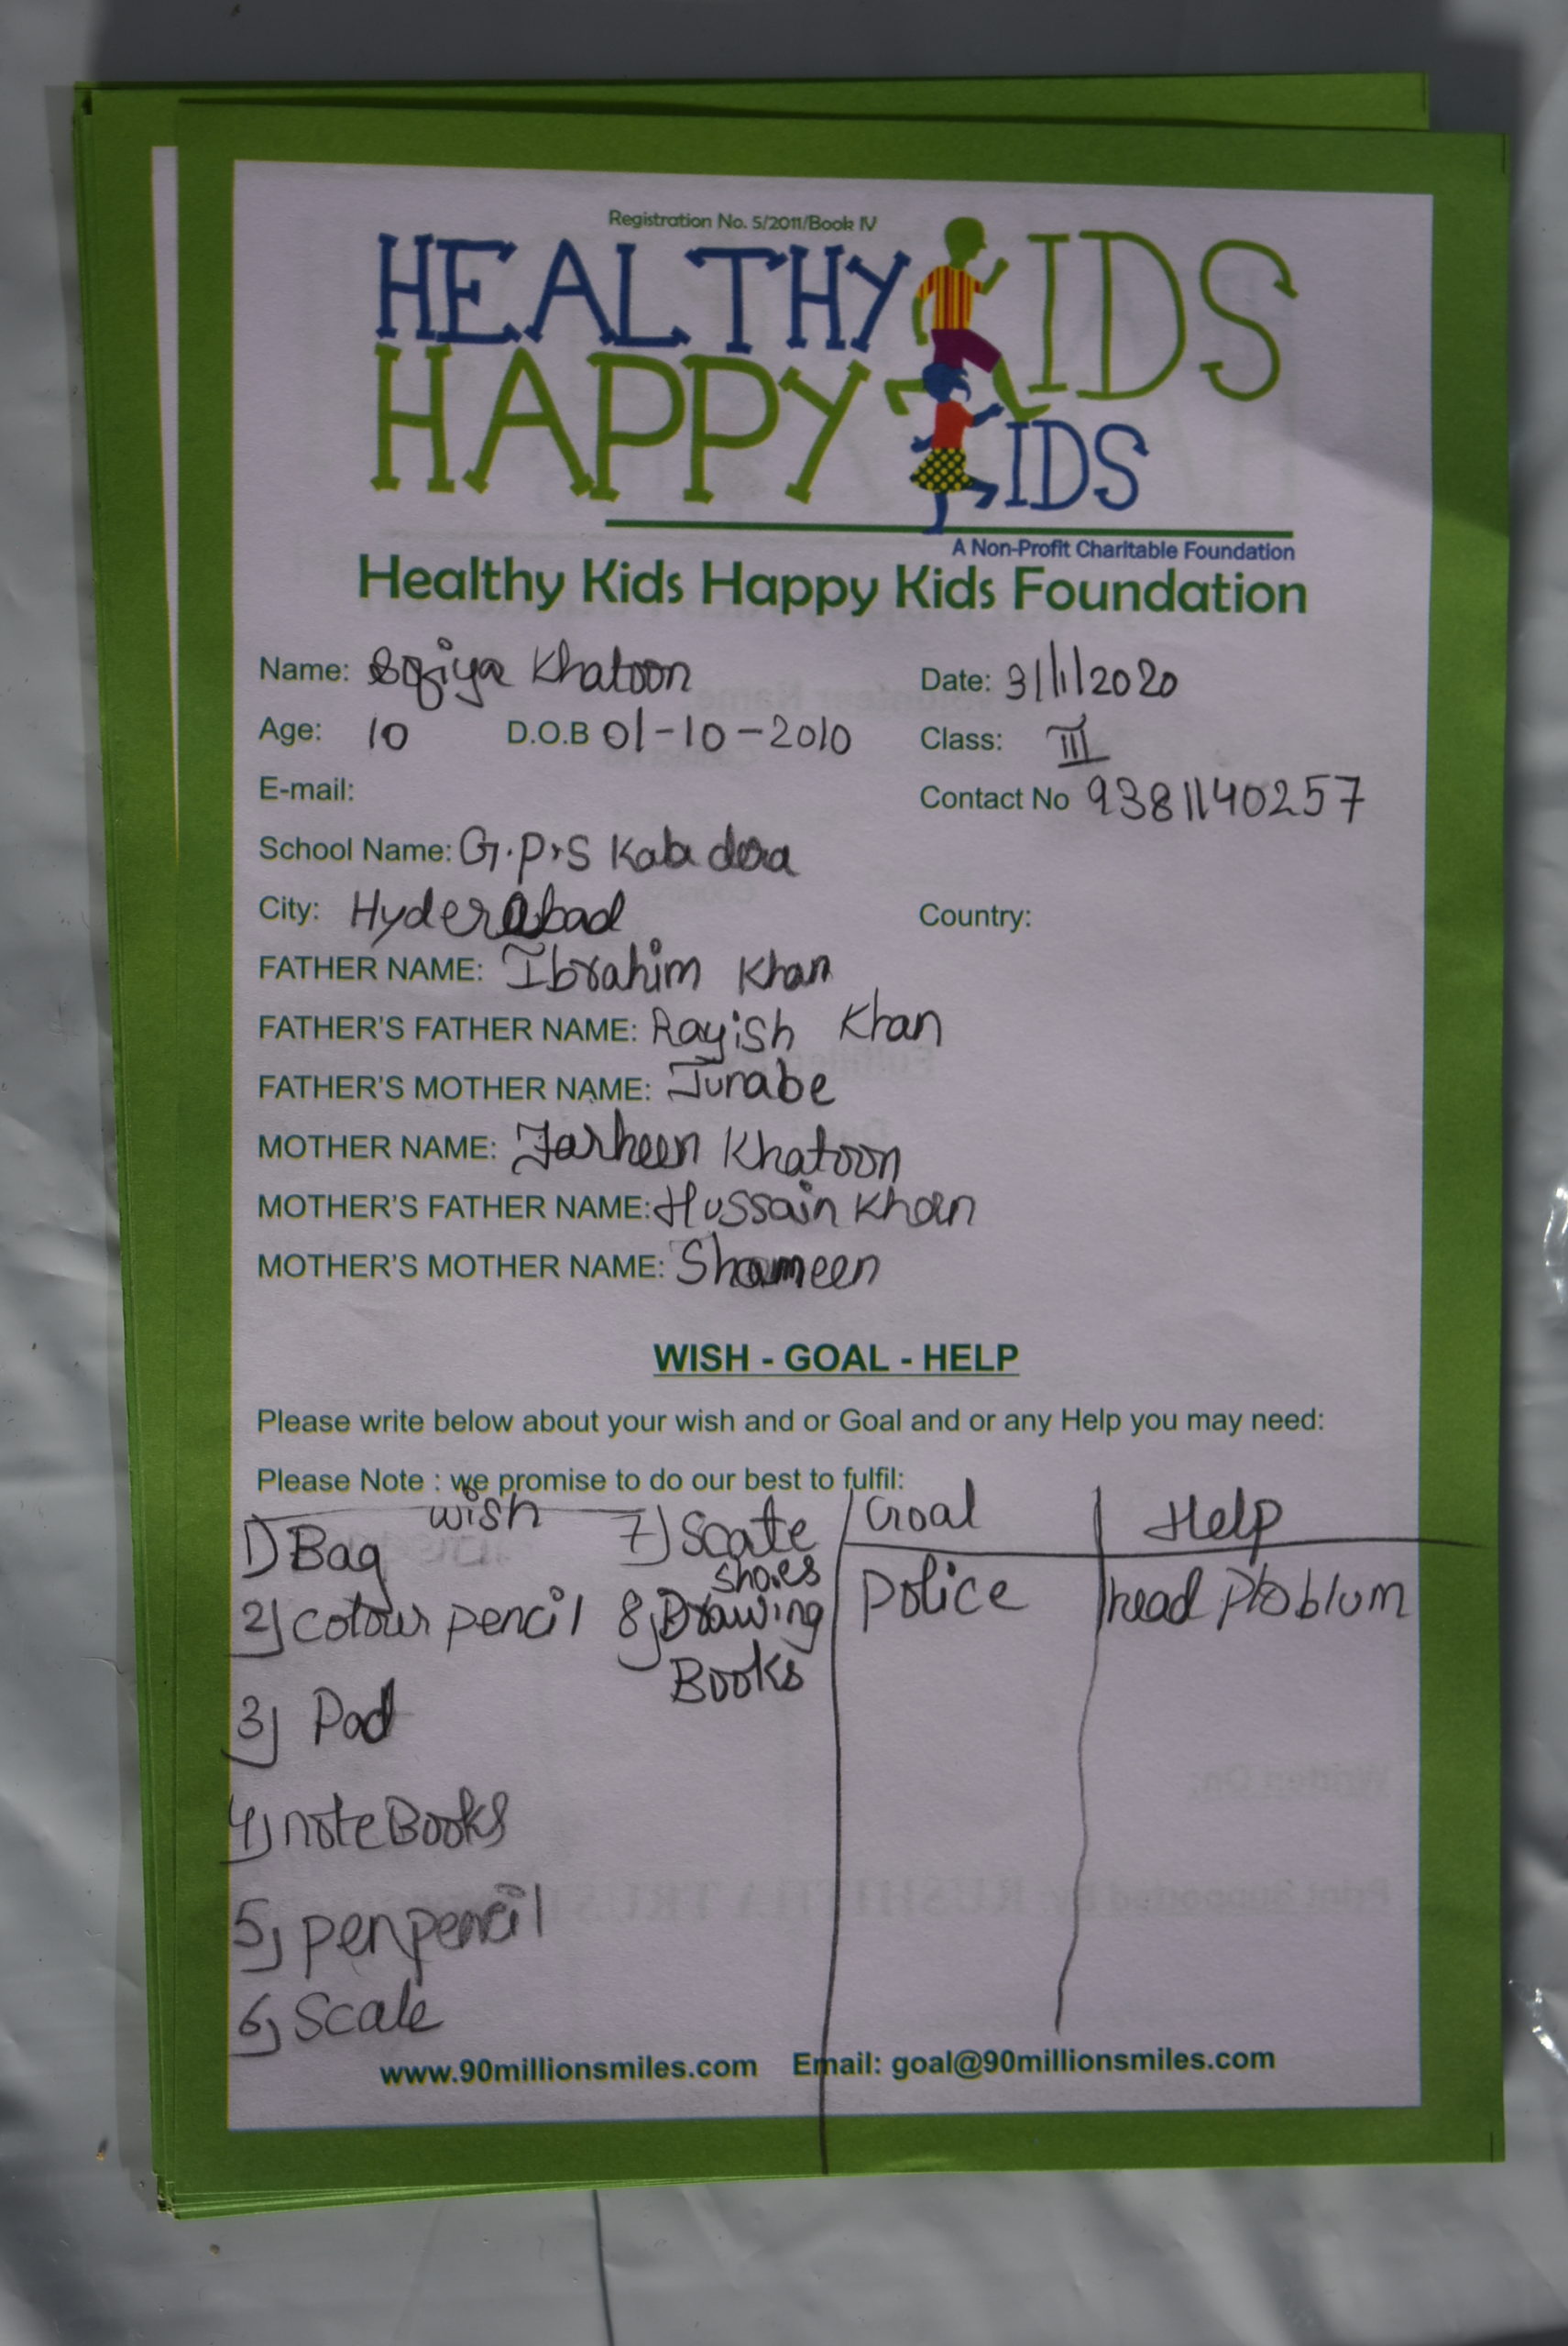 Registration No. 5/2011/Book IV
HEALTHY KIDS
HAPPY KIDS
A Non-Profit Charitable Foundation
Healthy Kids Happy Kids Foundation
Name: Sofiya Khatoon Date: 31/1/2020
Age: 10 D.O.B 01-10-2010 Class: III
E-mail: Contact No 9381140257
School Name: G.P.S Kala dera
City: Hyderabad Country:
FATHER NAME: Ibrahim Khan
FATHER'S FATHER NAME: Rayish Khan
FATHER'S MOTHER NAME: Junabe
MOTHER NAME: Farheen Khatoon
MOTHER'S FATHER NAME: Hussain Khan
MOTHER'S MOTHER NAME: Shameen
WISH - GOAL - HELP
Please write below about your wish and or Goal and or any Help you may need:
Please Note : we promise to do our best to fulfil:
wish
1) Bag
2) colour pencil
3) Pad
4) note Books
5) penpencil
6) Scale
7) Scate
shoes
8) Drawing
Books
Goal
police
Help
head problum
www.90millionsmiles.com Email: goal@90millionsmiles.com